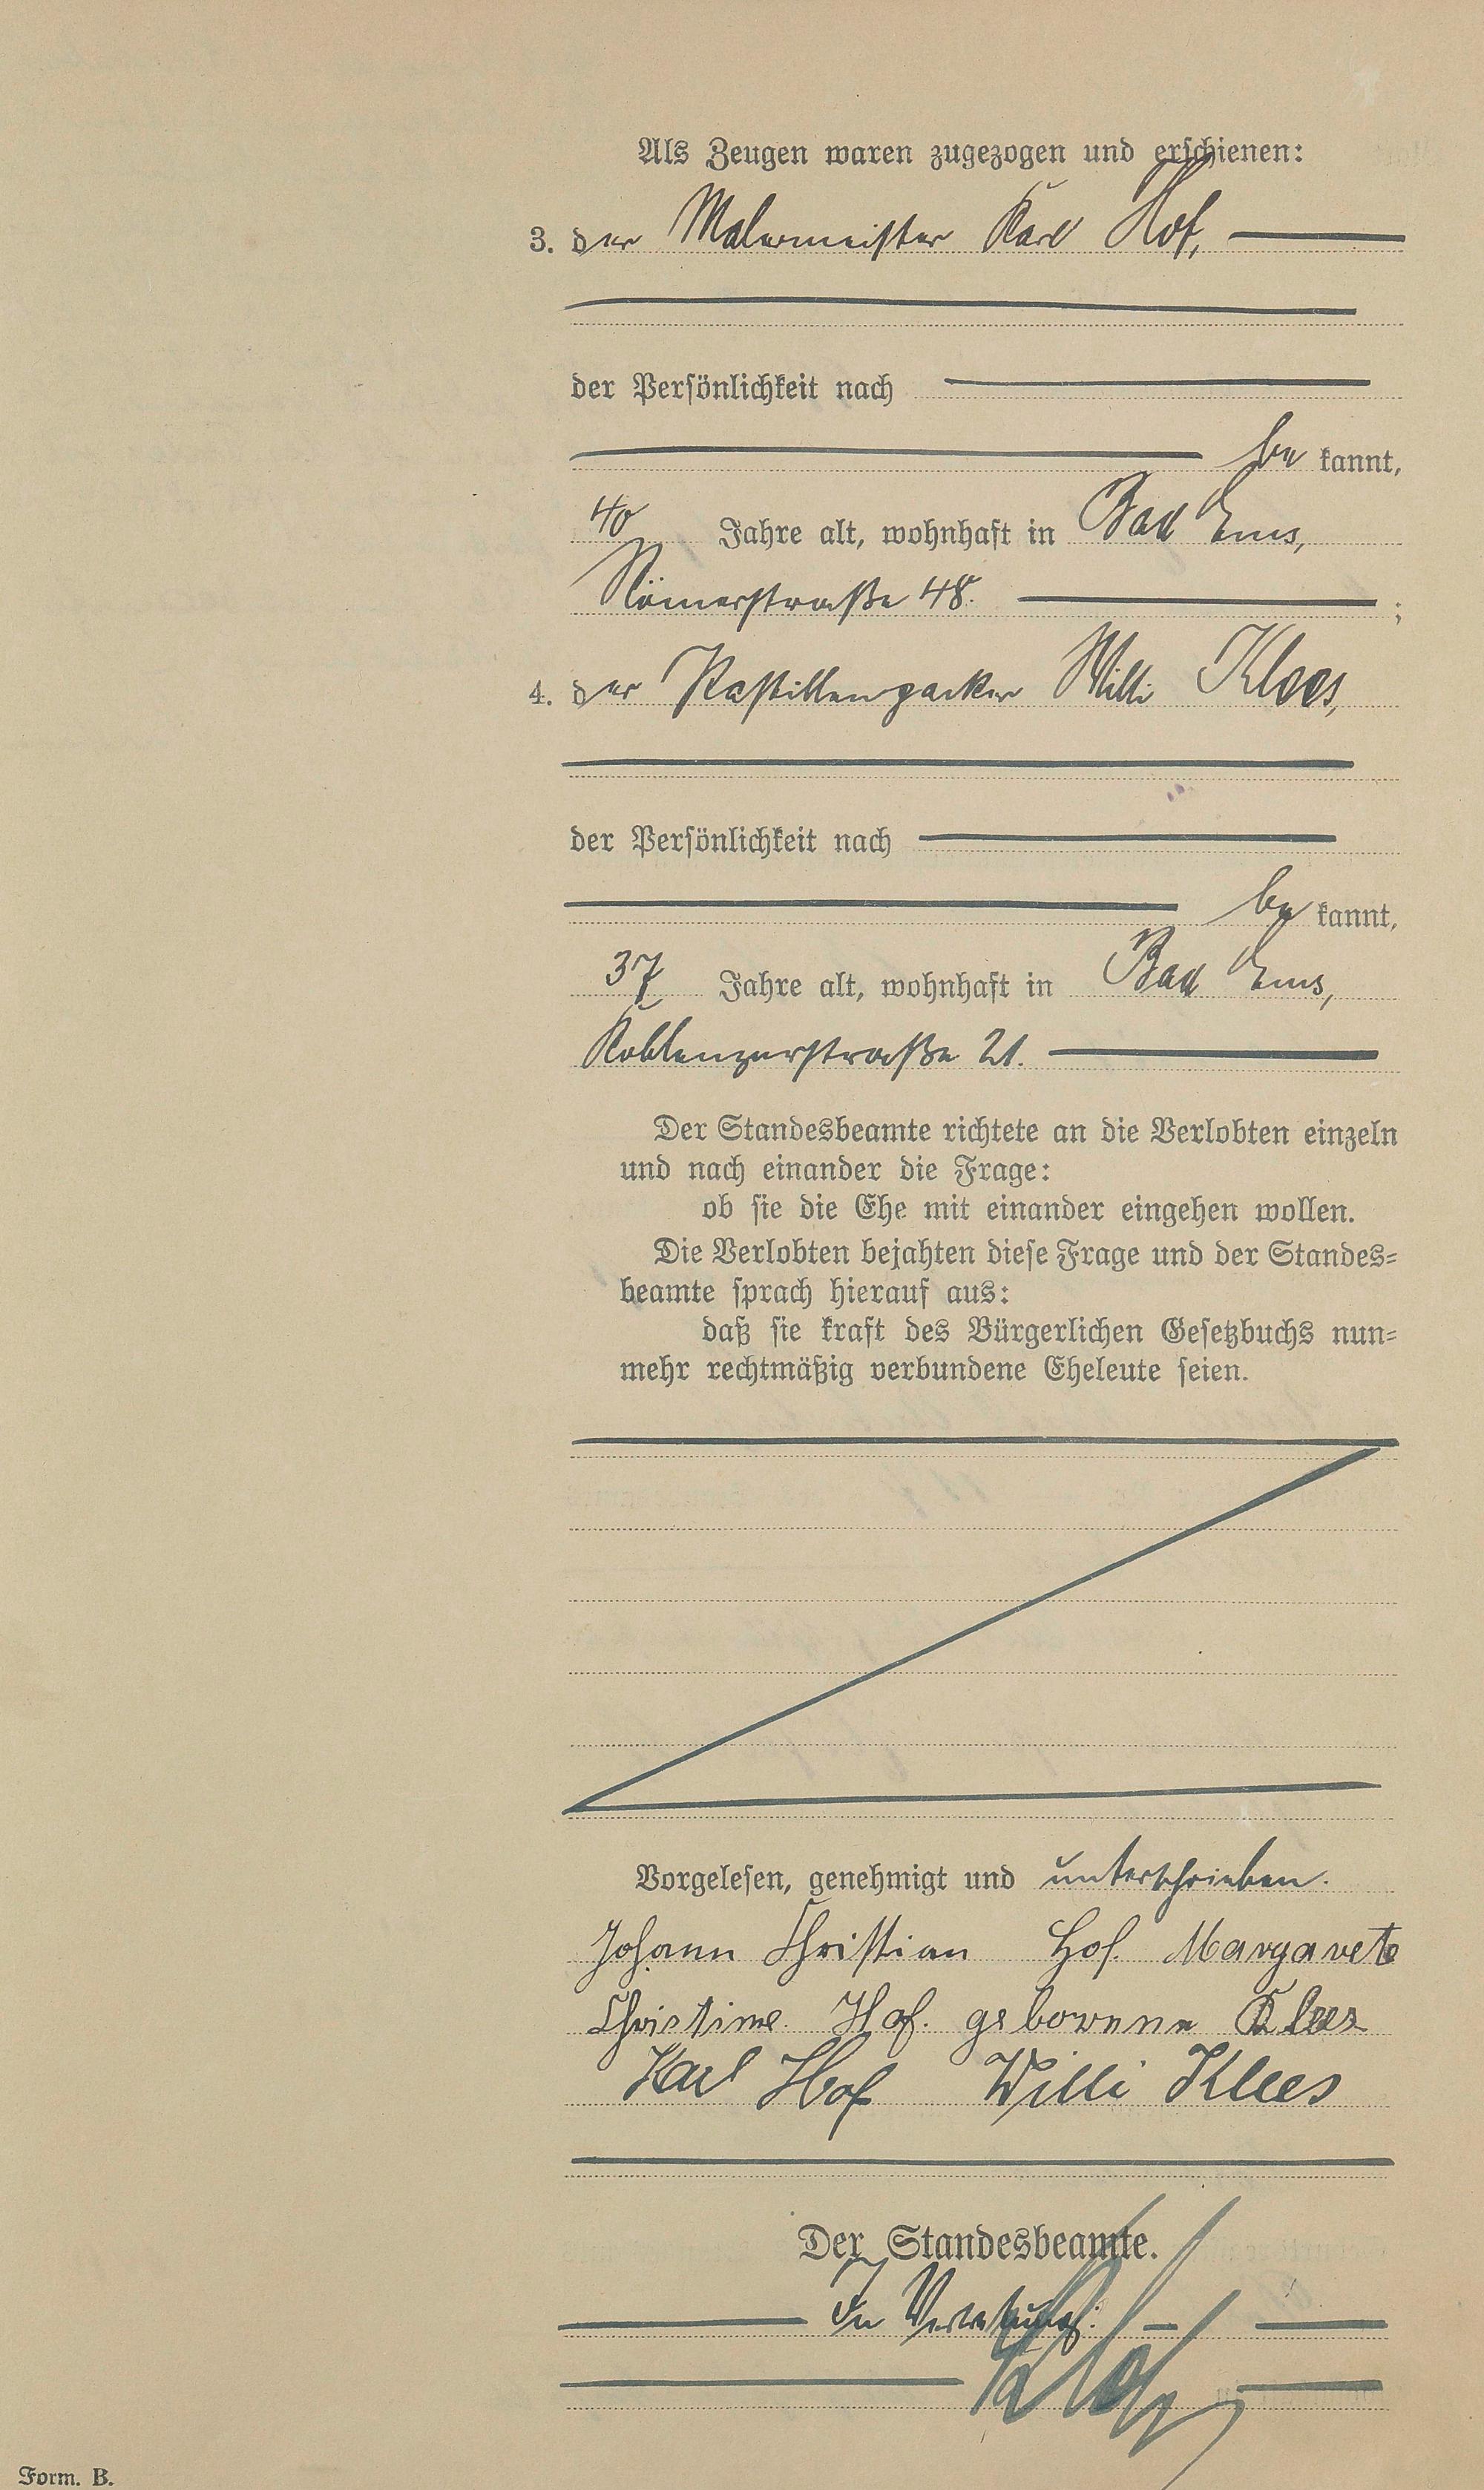 Als Zeugen waren zugezogen und erschienen:
3. der Malermeister Karl Hof,
der Persönlichkeit nach
be kannt,
40 Jahre alt, wohnhaft in Bad Ems,
Römerstraße 48. ;
4. der Pastillenpacker Willi Klees,
der Persönlichkeit nach
be kannt,
37 Jahre alt, wohnhaft in Bad Ems,
Koblenzerstraße 21.
Der Standesbeamte richtete an die Verlobten einzeln
und nach einander die Frage:
ob sie die Ehe mit einander eingehen wollen.
Die Verlobten bejahten diese Frage und der Standes-
beamte sprach hierauf aus:
daß sie kraft des Bürgerlichen Gesetzbuchs nun-
mehr rechtmäßig verbundene Eheleute seien.
Vorgelesen, genehmigt und unterschrieben.
Johann Christian Hof. Margarete
Christine Hof. geborene Klees
Karl Hof Willi Klees
Der Standesbeamte.
In Vertretung:
Form. B.